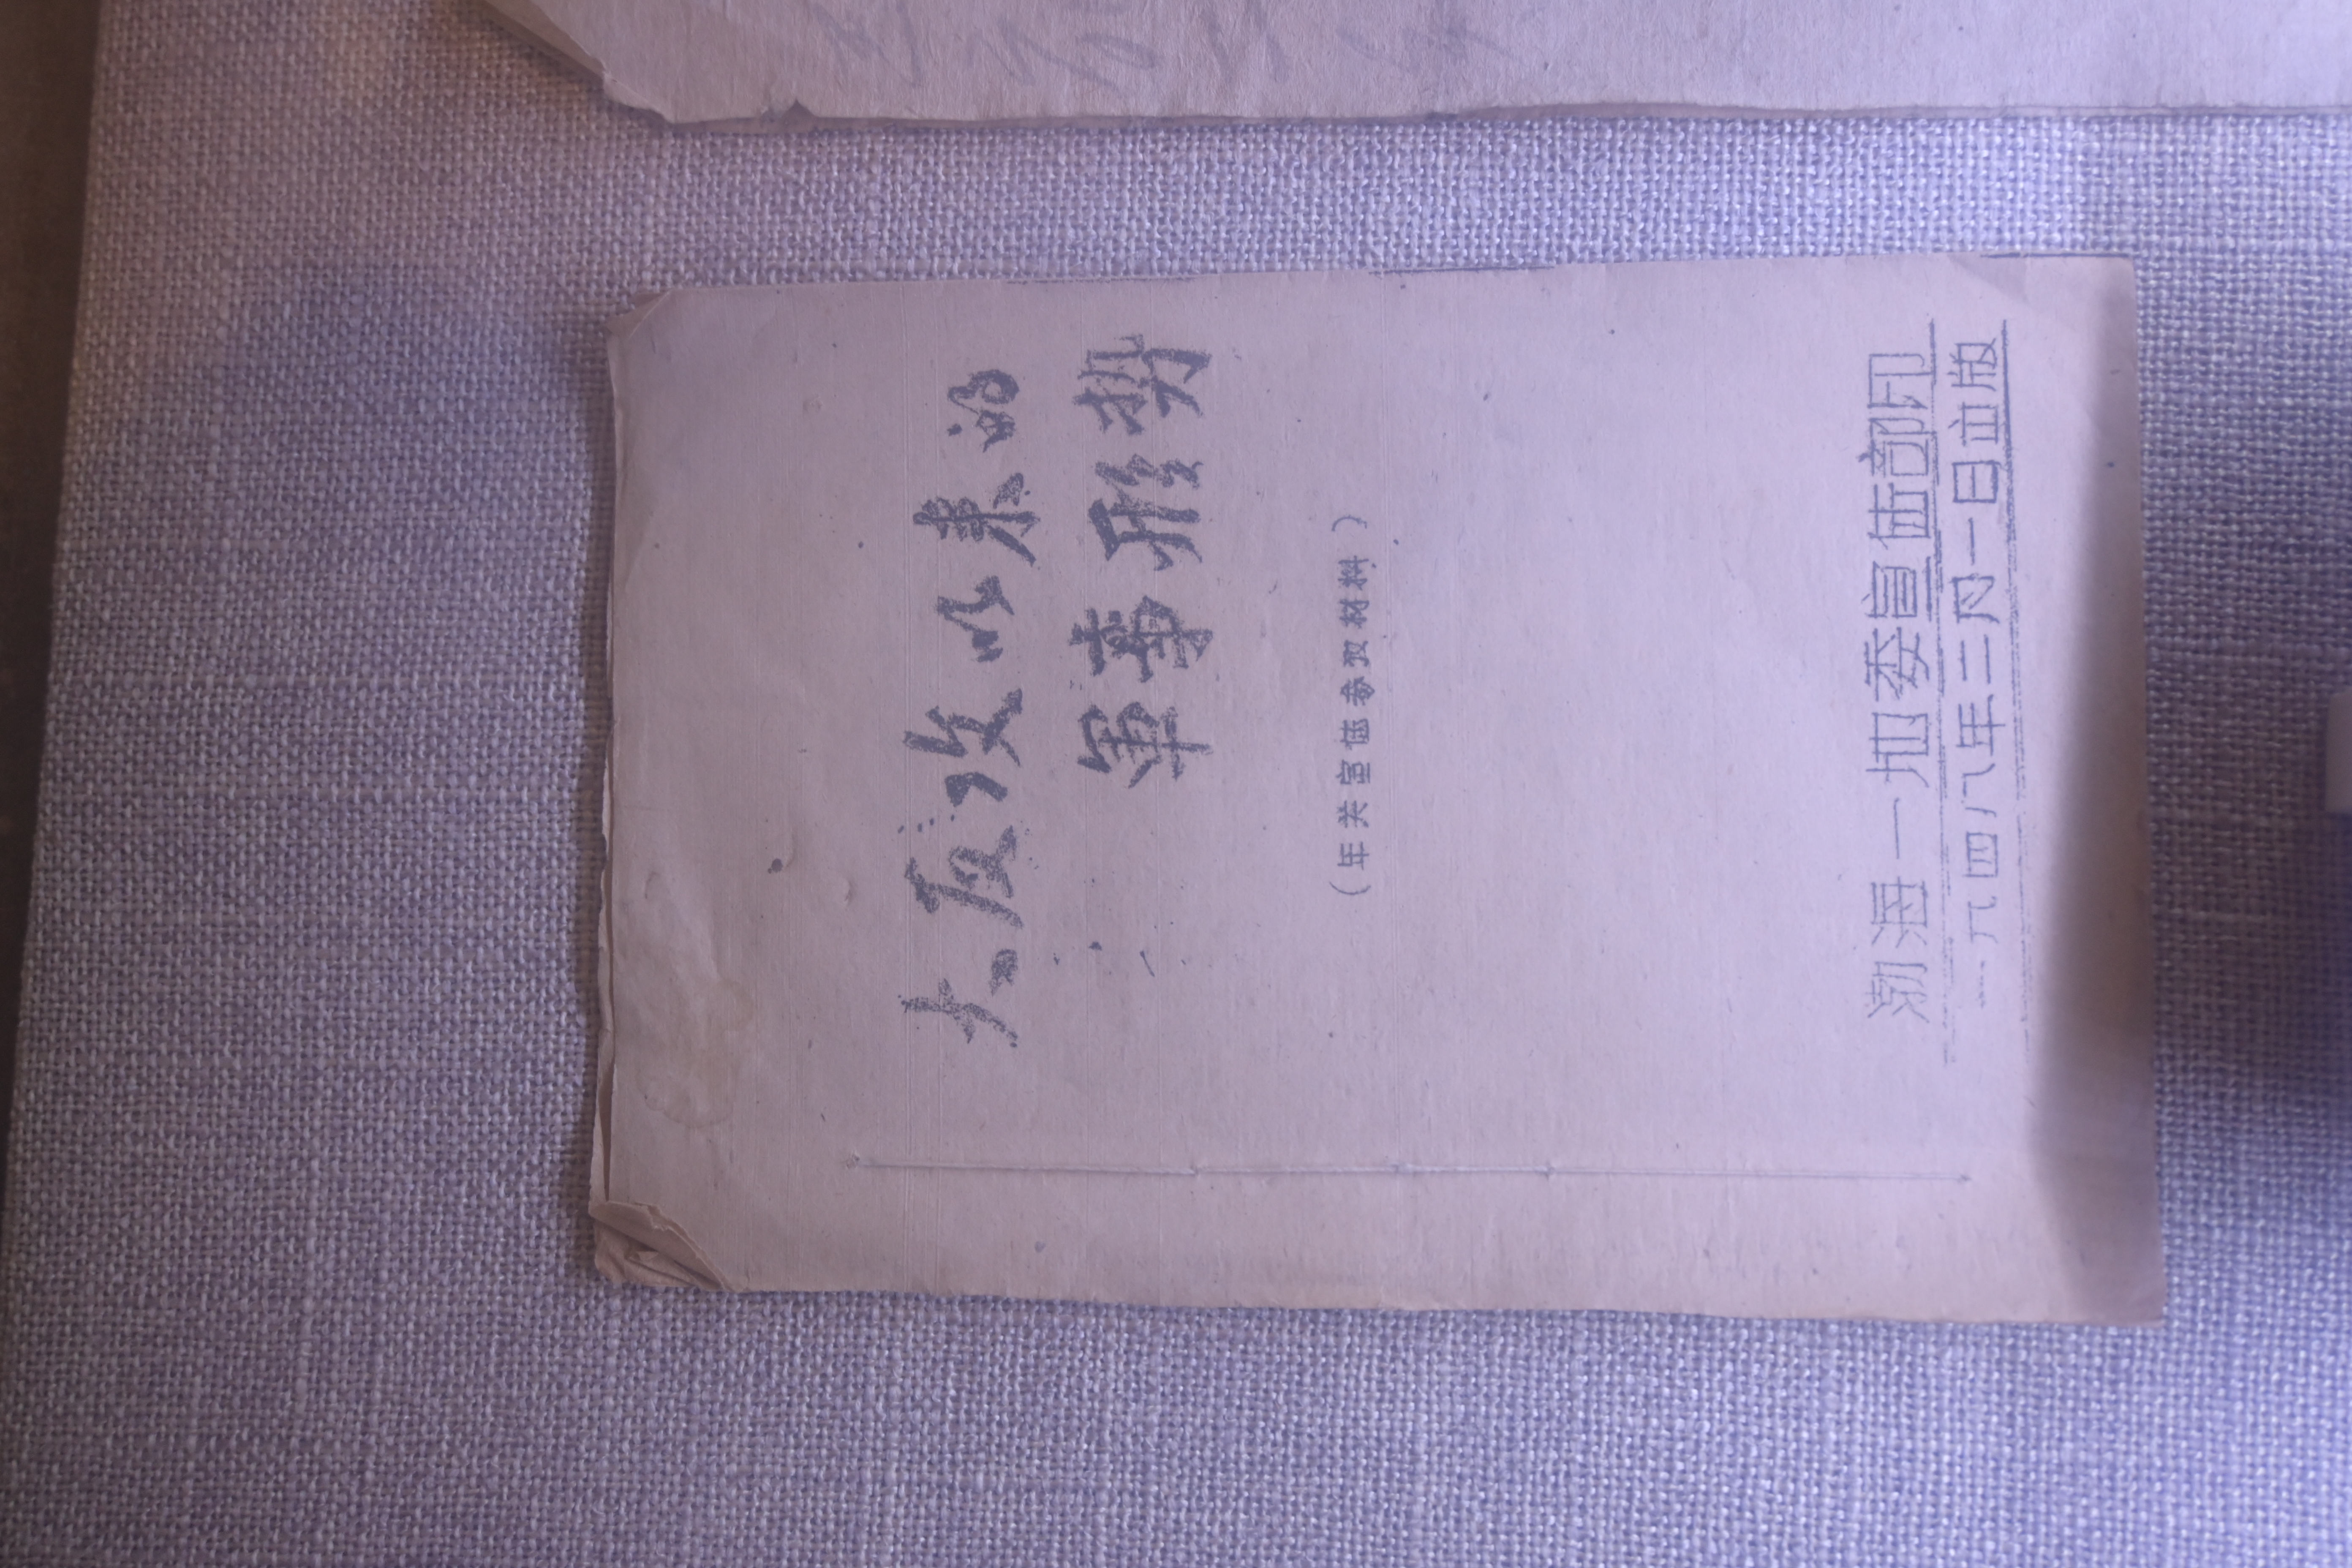 大反攻以来的
軍事形势
（年关宣传参攷材料）
渤海一地委宣传部印
一九四八年二月一日出版